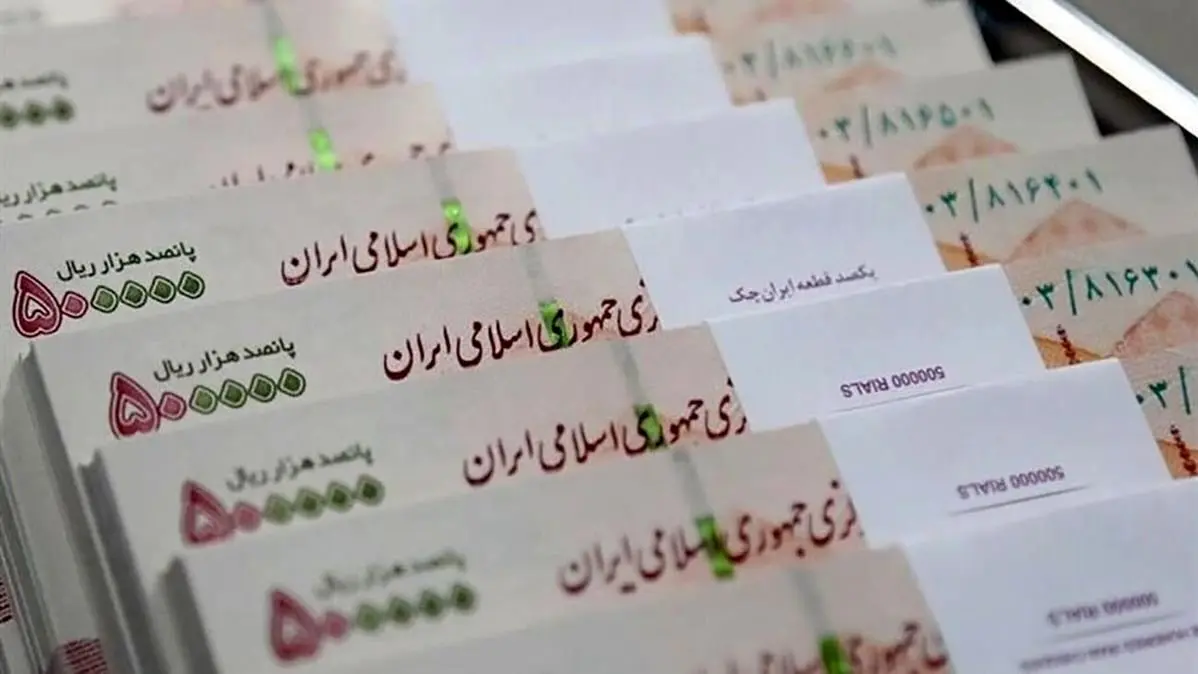 پانصد هزار ریال
جمهوری اسلامی ایران
۰۳/۸۱۶۶۰۱
پانصد هزار ریال
۰۳/۸۱۶۵۰۱
پانصد هزار ریال
۵۰۰۰۰۰
جمهوری اسلامی ایران
۰۳/۸۱۶۴۰۱
یکصد قطعه ایران چک
پانصد هزار ریال
۵۰۰۰۰۰
جمهوری اسلامی ایران
۰۳/۸۱۶۳۰۱
500000 RIALS
پانصد هزار ریال
۵۰۰۰۰۰
جمهوری اسلامی ایران
۰۳/
500000 RIALS
پانصد هزار ریال
۵۰۰۰۰۰
جمهوری اسلامی ایران
500000 RIALS